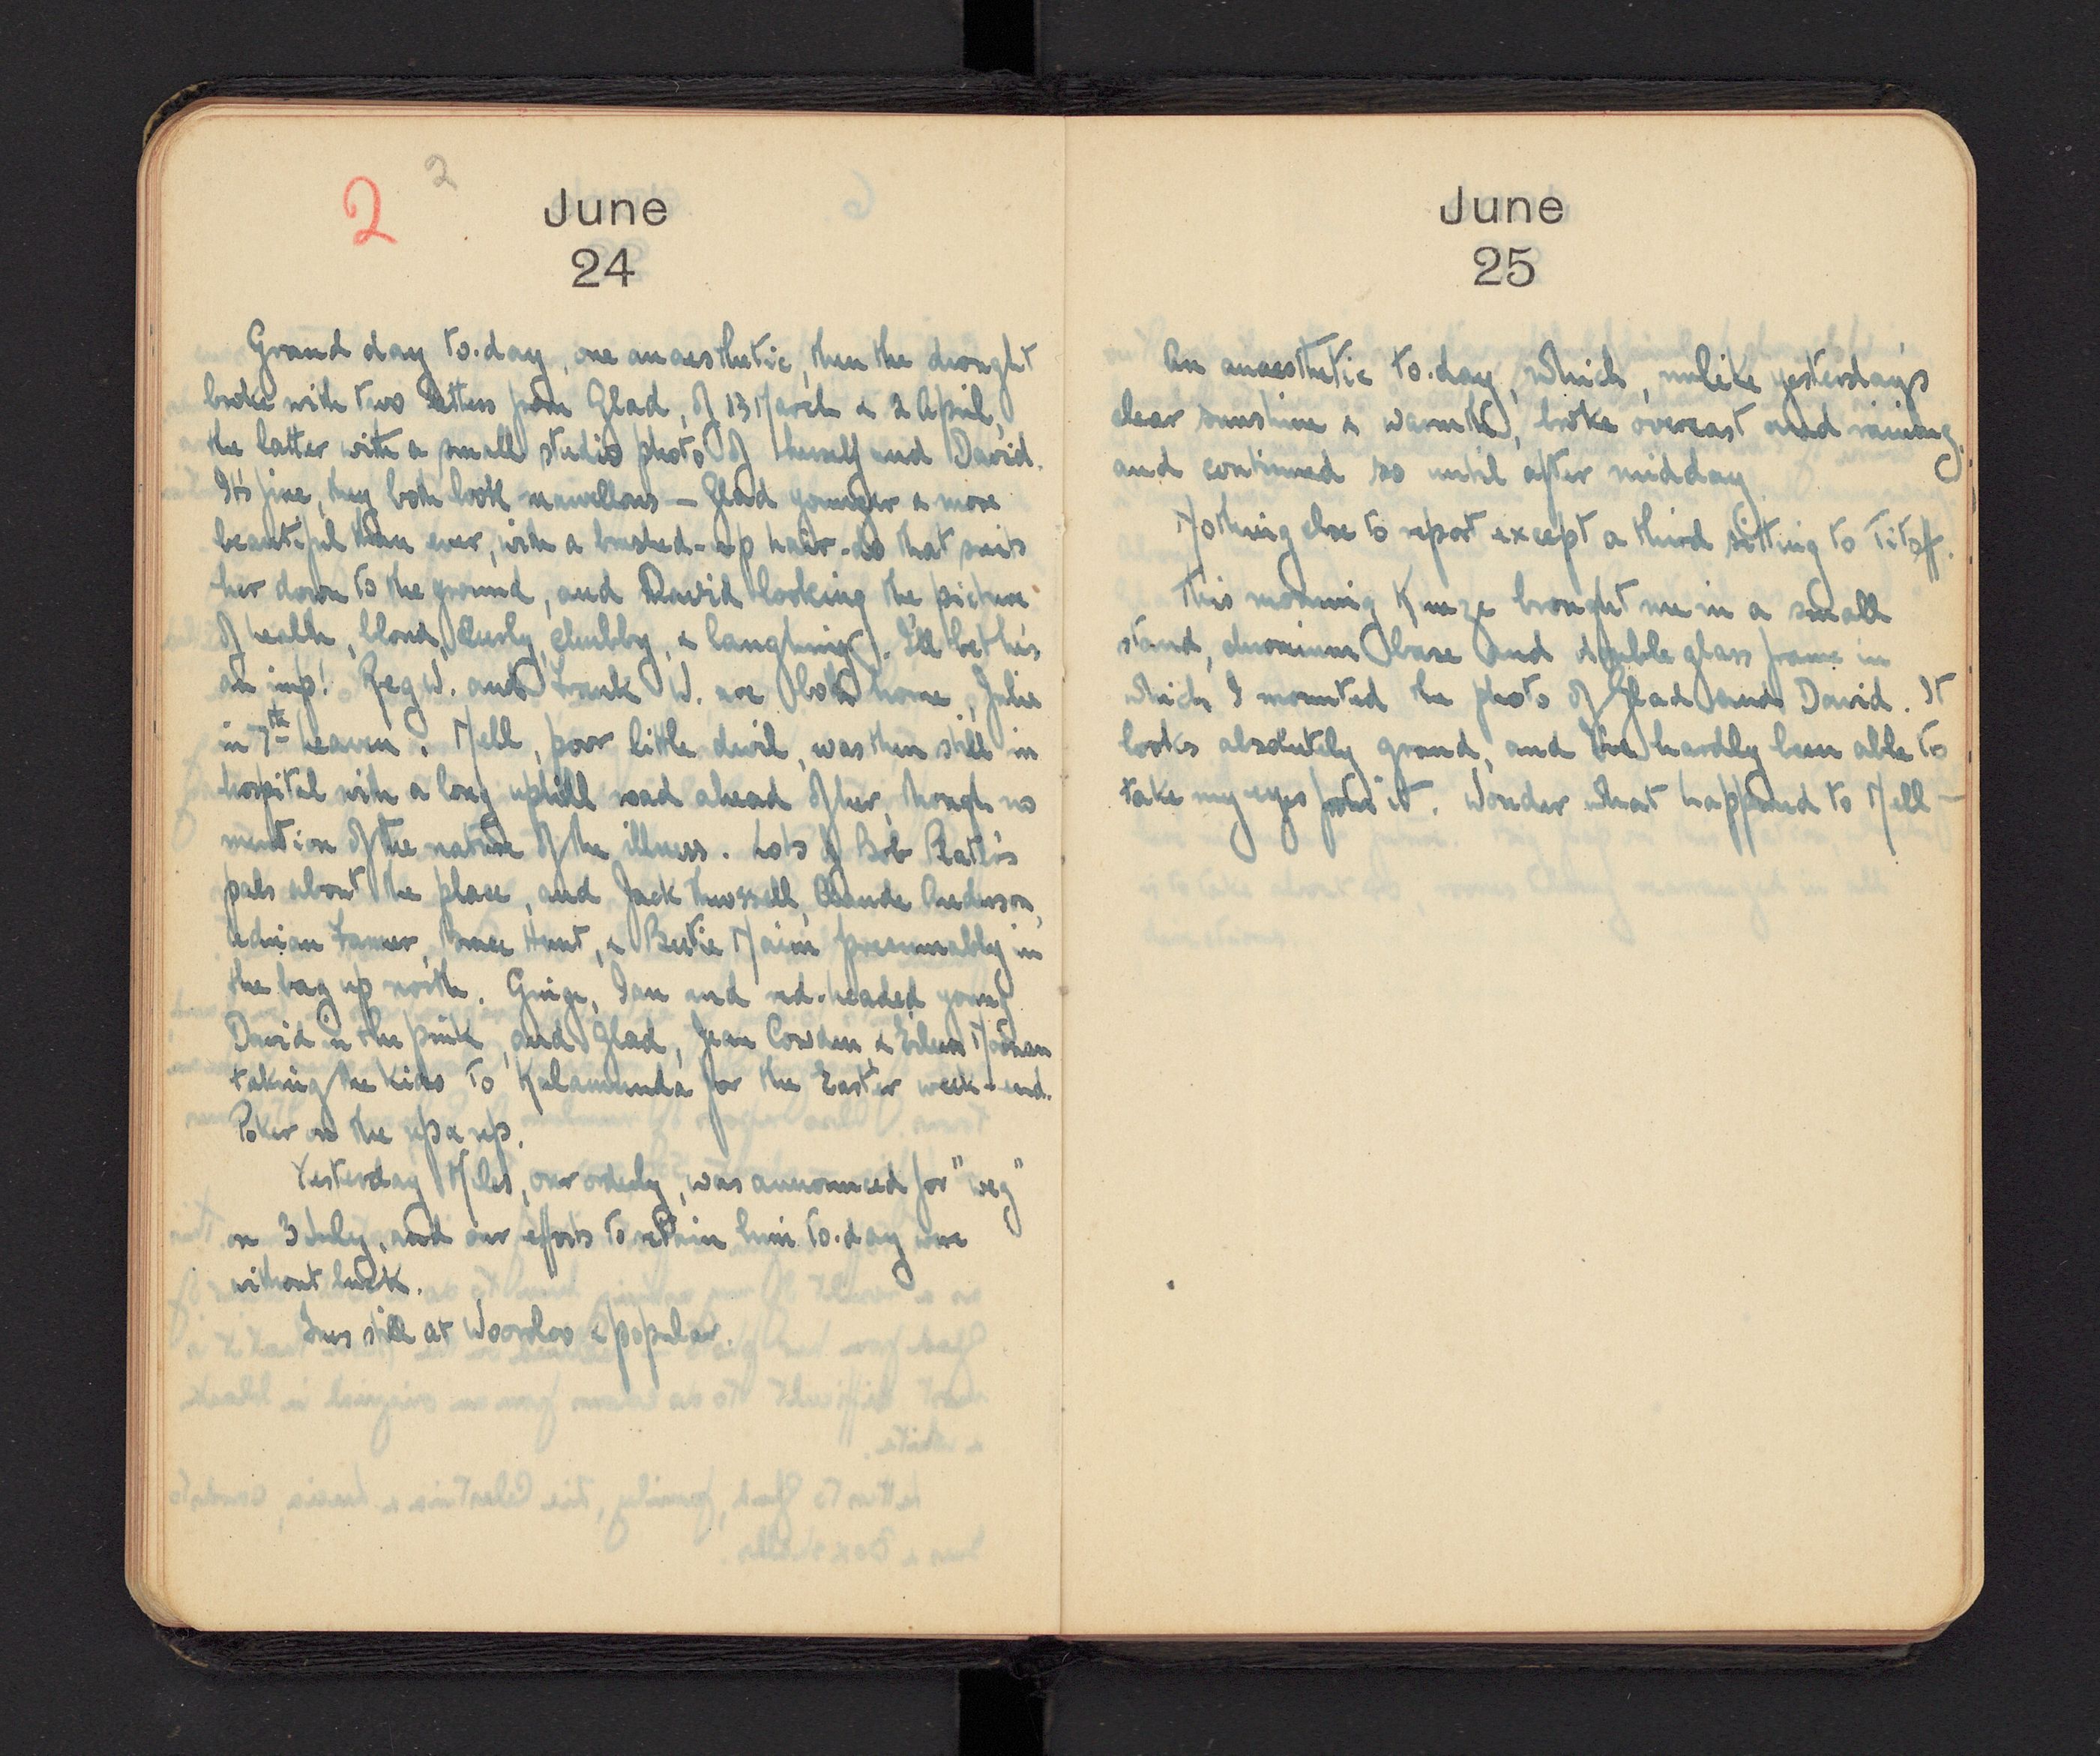 2 2
June
24
Grand day to-day, one anaesthetic, then the drought
broke with two letters from Glad, of 13 March & 2 April,
the latter with a small studio photo of herself and David.
It's fine, they both look marvellous — Glad younger & more
beautiful than ever, with a brushed-up hair-do that suits
her down to the ground, and David looking the picture
of health, blond, curly, chubby, & laughing. I'll bet he's
an imp! Reg W. and Frank W. are both home, Julie
in 7th heaven. Nell, poor little devil, was then still in
hospital with a long uphill road ahead of her, though no
mention of the nature of the illness. Lots of Bob
pals about the place, and Jack Claude Anderson,
Adrian Farmer, Bruce Hunt, & Bertie Nairn presumably in
the bag up north. Ian and red-headed young
David in the pink, and Glad, Jean Cowden & Eileen
taking the kids to Kalamunda for the Easter week-end.
Poker on the up & up.
Yesterday Miles, our orderly, was announced for "weg"
on 3 July, and our efforts to retain him to-day were
without luck.
still at Wooroloo & popular.
June
25
An anaesthetic to-day, which, unlike yesterday's
clear sunshine & warmth, broke overcast and raining,
and continued so until after midday.
Nothing else to report except a third sitting to Titoff.
This morning Kunze brought me in a small
stand, base and double glass frame in
which I mounted the photo of Glad and David. It
looks absolutely grand, and I've hardly been able to
take my eyes from it. Wonder what happened to Nell —